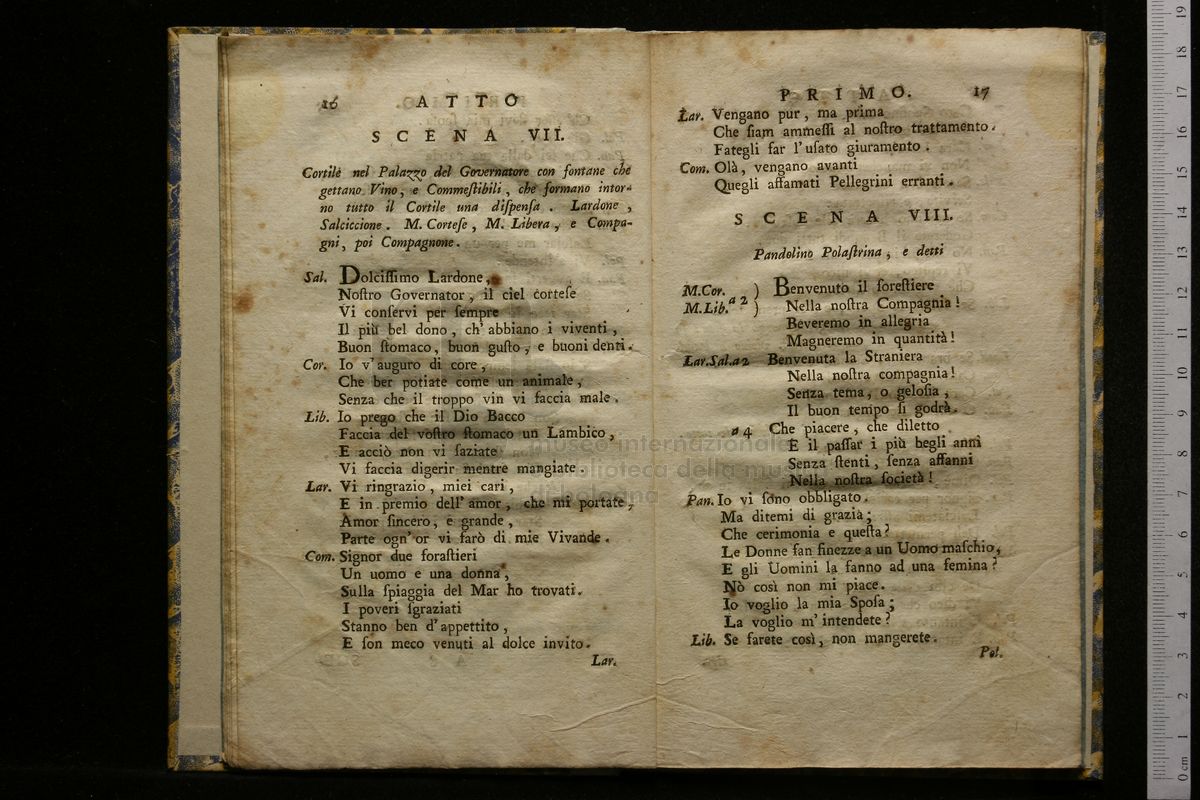 16 ATTO
SCENA VII.
Cortile nel Palazzo del Governatore con fontane che
gettano Vino, e Commeſtibili, che formano intor-
no tutto il Cortile una diſpenſa. Lardone,
Salciccione. M. Corteſe, M. Libera, e Compa-
gni, poi Compagnone.
Sal. Dolciſſimo Lardone,
Noſtro Governator, il ciel corteſe
Vi conſervi per ſempre
Il più bel dono, ch' abbiano i viventi,
Buon ſtomaco, buon guſto, e buoni denti.
Cor. Io v'auguro di core,
Che ber potiate come un animale,
Senza che il troppo vin vi faccia male.
Lib. Io prego che il Dio Bacco
Faccia del voſtro ſtomaco un Lambico,
E acciò non vi ſaziate
Vi faccia digerir mentre mangiate.
Lar. Vi ringrazio, miei cari,
E in premio dell' amor, che mi portate,
Amor ſincero, e grande,
Parte ogn' or vi farò di mie Vivande.
Com. Signor due foraſtieri
Un uomo e una donna,
Sulla ſpiaggia del Mar ho trovati.
I poveri ſgraziati
Stanno ben d'appettito,
E ſon meco venuti al dolce invito.
Lar.
PRIMO. 17
Lar. Vengano pur, ma prima
Che ſiam ammeſſi al noſtro trattamento.
Fategli far l'uſato giuramento.
Com. Olà, vengano avanti
Quegli affamati Pellegrini erranti.
SCENA VIII.
Pandolino Polaſtrina, e detti
M.Cor. ) Benvenuto il foreſtiere
M.Lib. a 2 ) Nella noſtra Compagnia!
Beveremo in allegria
Magneremo in quantità!
Lar.Sal.a2 Benvenuta la Straniera
Nella noſtra compagnia!
Senza tema, o geloſia,
Il buon tempo ſi godrà.
a 4 Che piacere, che diletto
E il paſſar i più begli anni
Senza ſtenti, ſenza affanni
Nella noſtra ſocietà!
Pan. Io vi ſono obbligato.
Ma ditemi di grazia;
Che cerimonia e queſta?
Le Donne fan finezze a un Uomo maſchio,
E gli Uomini la fanno ad una femina?
Nò così non mi piace.
Io voglio la mia Spoſa;
La voglio m'intendete?
Lib. Se farete così, non mangerete.
Pol.
museo internazionale
biblioteca della musica